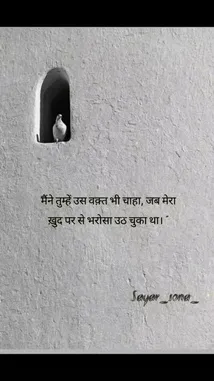 मैंने तुम्हें उस वक़्त भी चाहा, जब मेरा
ख़ुद पर से भरोसा उठ चुका था।"
Sayar_sona_